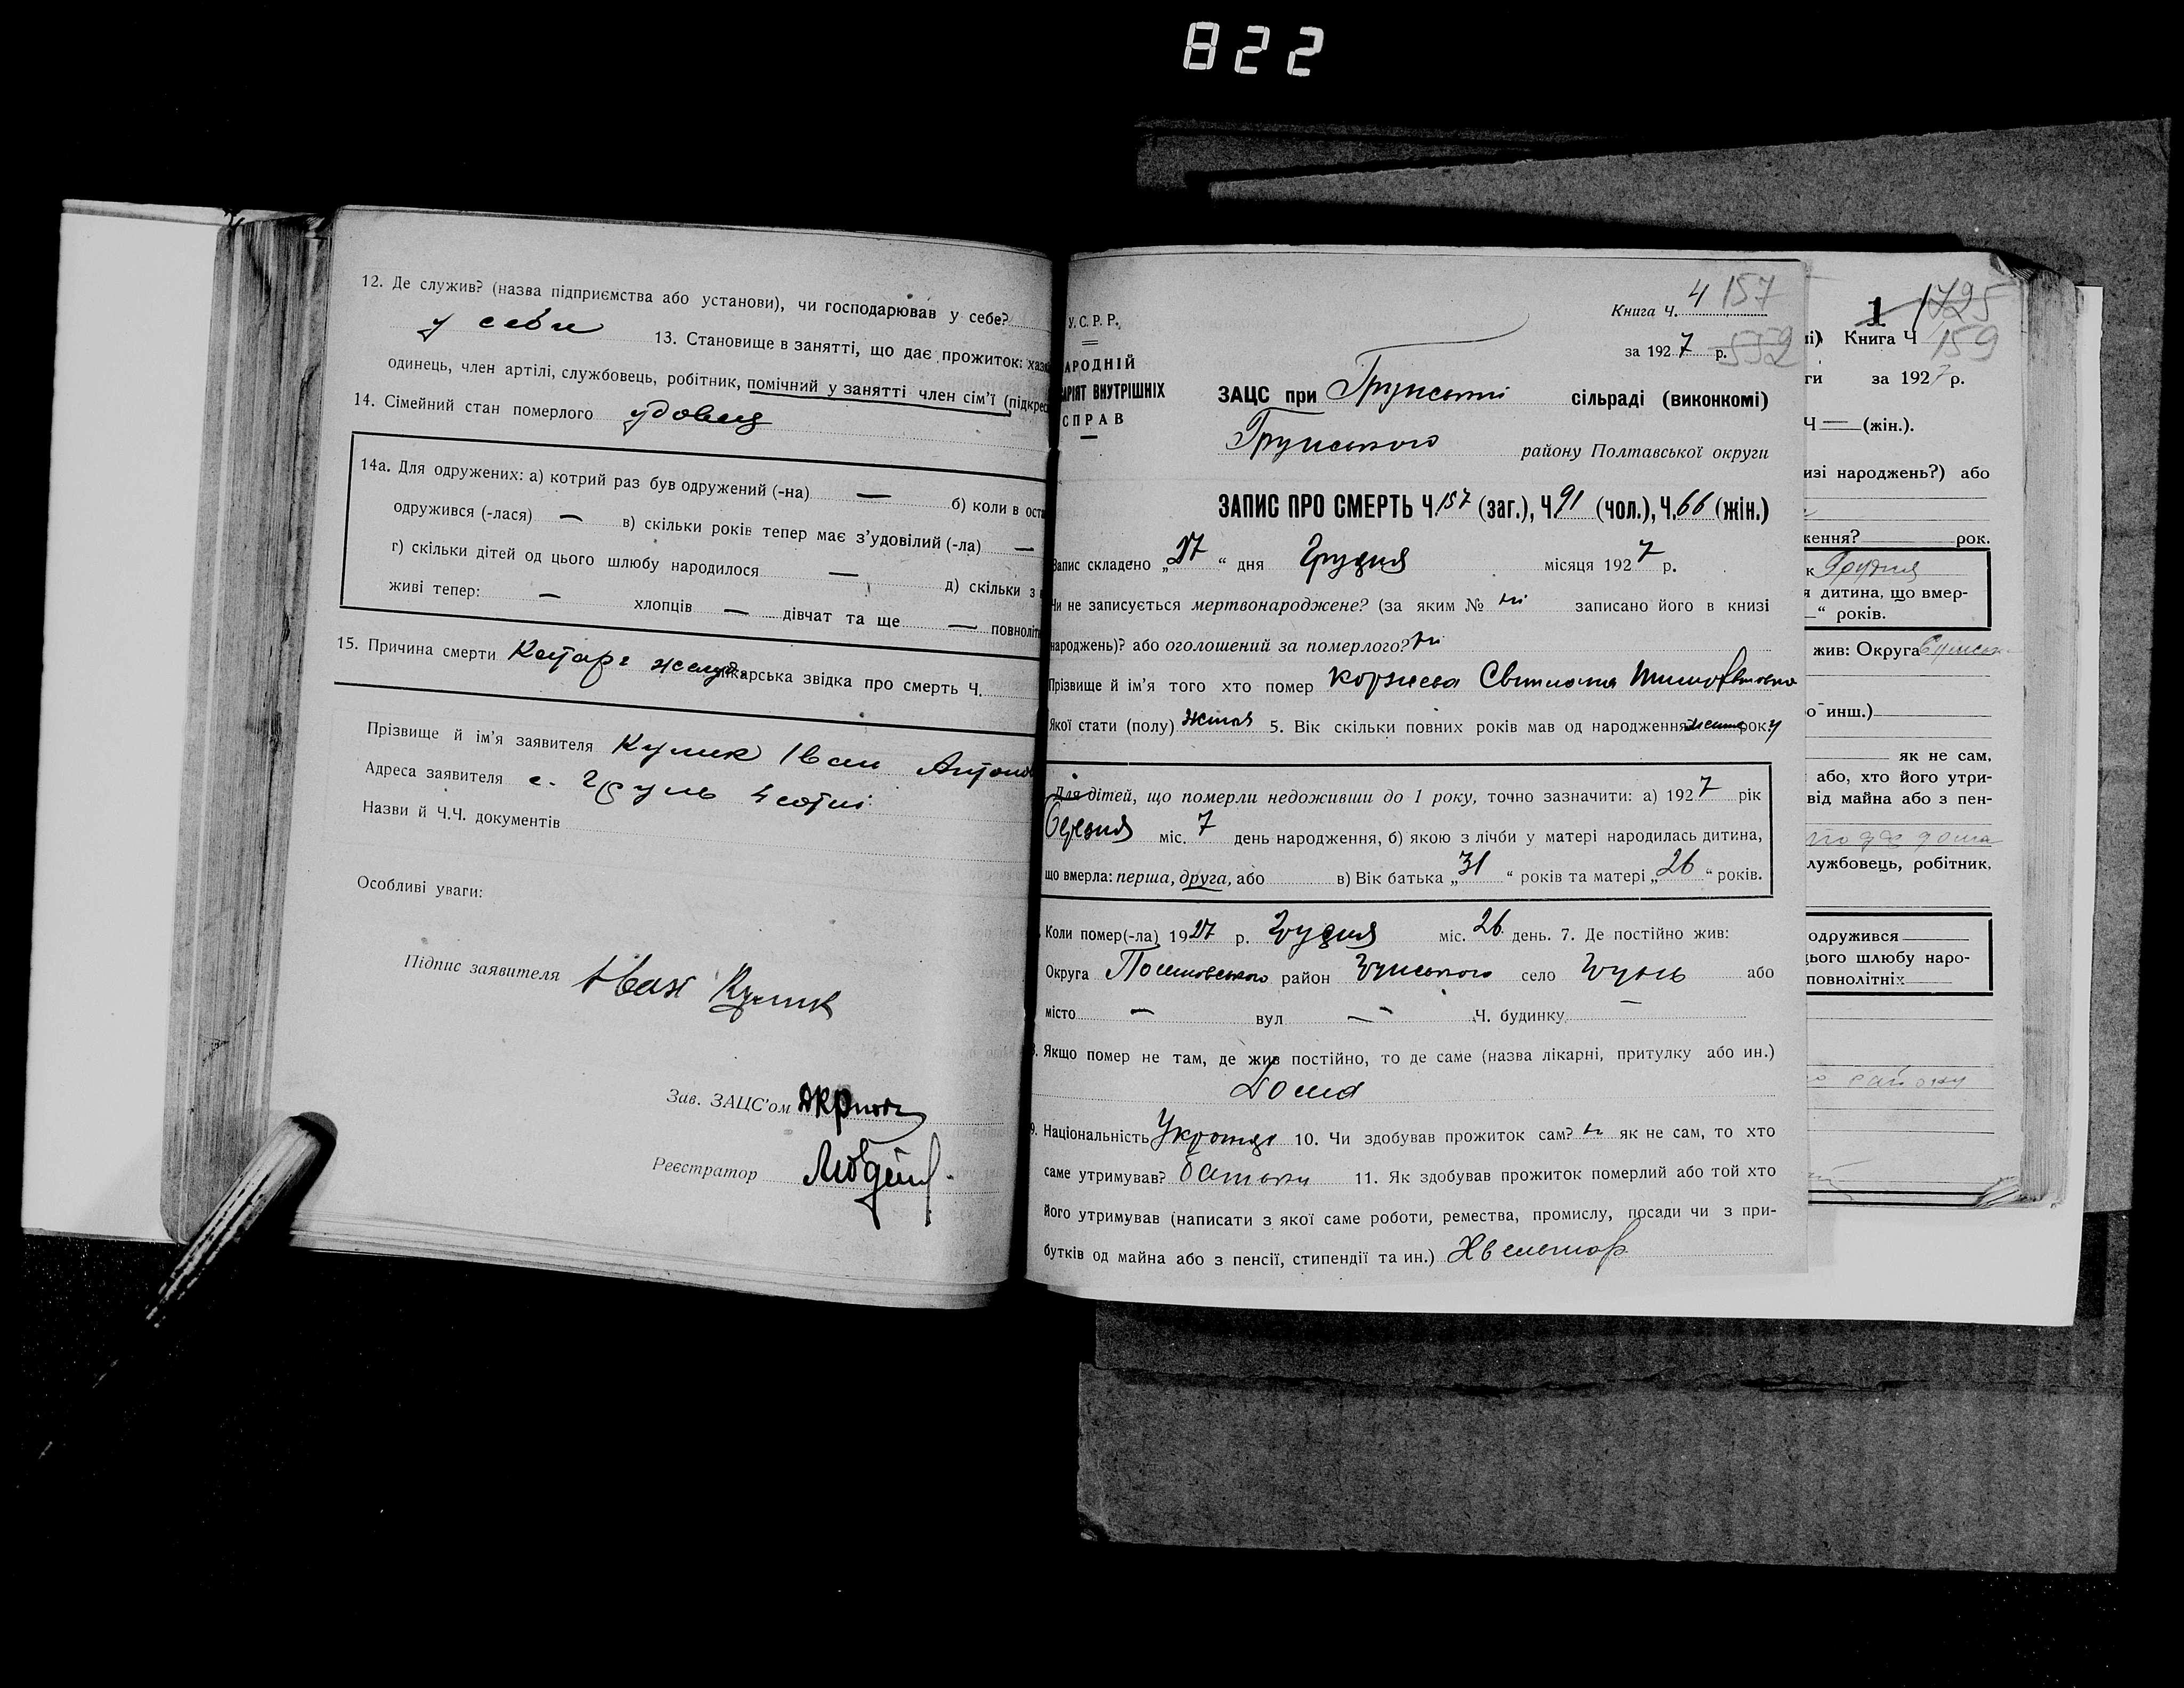 822
12. Де служив? (назва підприємства або установи), чи господарював у себе?
у себе 13. Становище в занятті, що дає прожиток:
одинець, член артілі, службовець, робітник, помічний у занятті член сім'ї
14. Сімейний стан померлого удовец
14а. Для одружених: а) котрий раз був одружений (-на) — б) коли в
одружився (-лася) — в) скільки років тепер має з'удовілий (-ла) —
г) скільки дітей од цього шлюбу народилося — д) скільки з
живі тепер: — хлопців — дівчат та ще —
15. Причина смерти Катар звідка про смерть Ч.
Прізвище й ім'я заявителя Кулик Іван
Адреса заявителя с. Грунь 4 сотні
Назви й Ч.Ч. документів
Особливі уваги:
Підпис заявителя Іван Кулик
Зав. ЗАЦС'ом
Реєстратор
У.С.Р.Р.
АРОДНІЙ
АРІЯТ ВНУТРІШНІХ
СПРАВ
Книга Ч. 4 157
за 1927 р. 552
ЗАЦС при Грунській сільраді (виконкомі)
Грунського району Полтавської округи
ЗАПИС ПРО СМЕРТЬ Ч 157 (заг.), Ч 91 (чол.), Ч. 66 (жін.)
Запис складено „27“ дня Грудня місяця 1927 р.
Чи не записується мертвонароджене? (за яким № ні записано його в книзі
народжень)? або оголошений за померлого? ні
Прізвище й ім'я того хто помер Корнєва Світлана
Якої стати (полу) жіноч 5. Вік скільки повних років мав од народження
Для дітей, що померли недоживши до 1 року, точно зазначити: а) 1927 рік
березня міс. 7 день народження, б) якою з лічби у матері народилась дитина,
що вмерла: перша, друга, або в) Вік батька „31“ років та матері „26“ років.
Коли помер(-ла) 1927 р. Грудня міс. 26 день. 7. Де постійно жив:
Округа район Грунського село Грунь або
місто — вул — Ч. будинку —
Якщо помер не там, де жив постійно, то де саме (назва лікарні, притулку або ин.)
Дома
9. Національність 10. Чи здобував прожиток сам? ні як не сам, то хто
саме утримував? батьки 11. Як здобував прожиток померлий або той хто
його утримував (написати з якої саме роботи, ремества, промислу, посади чи з при-
бутків од майна або з пенсії, стипендії та ин.)
1 1725
Книга Ч 159
ги за 1927 р.
Ч — (жін.).
изі народжень?) або
ження? рок.
к Грудня
я дитина, що вмер-
—“ років.
жив: Округа
о инш.)
як не сам,
або, хто його утри-
від майна або з пен-
лужбовець, робітник,
одружився
ього шлюбу наро-
повнолітніх
району